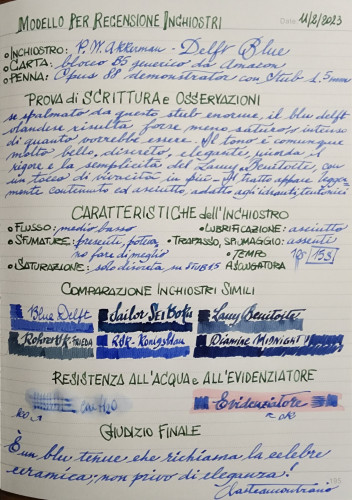 MODELLO PER RECENSIONE INCHIOSTRI
Date 11/2/2023
INCHIOSTRO: P.W. Akkerman - Delft Blue
CARTA: blocco B5 generico da Amazon
PENNA: Opus 88 demonstrator con Stub 1.5mm
PROVA di SCRITTURA e OSSERVAZIONI
se spalmato da questo stub enorme, il blu delft
olandese risulta forse meno saturo, e intenso
di quanto vorrebbe essere. Il tono è comunque
molto bello, discreto, elegante, ricorda il
rigore e la semplicità del Lamy Benitoite, con
un tocco di vivacità in più. Il tratto appare legger-
mente contenuto ed asciutto, adatto agli idrauti teutonici
CARATTERISTICHE dell'INCHIOSTRO
FLUSSO: medio basso
LUBRIFICAZIONE: asciutto
SFUMATURE: presenti, poteva
no fare di meglio
TRAPASSO, SPIUMAGGIO: assenti
SATURAZIONE: solo discreta, su STUB 1.5
TEMPO ASCIUGATURA 10s 15s
COMPARAZIONE INCHIOSTRI SIMILI
Blue Delft
Sailor SEI BOKU
Lamy Benitoite
Rohrer&K-
R&K- Königsblau
Diamine MIDNIGHT
RESISTENZA ALL'ACQUA e ALL'EVIDENZIATORE
Evidenziatore
ok
GIUDIZIO FINALE
È un blu tenue, che richiama la celebre
ceramica; non privo di eleganza!
195